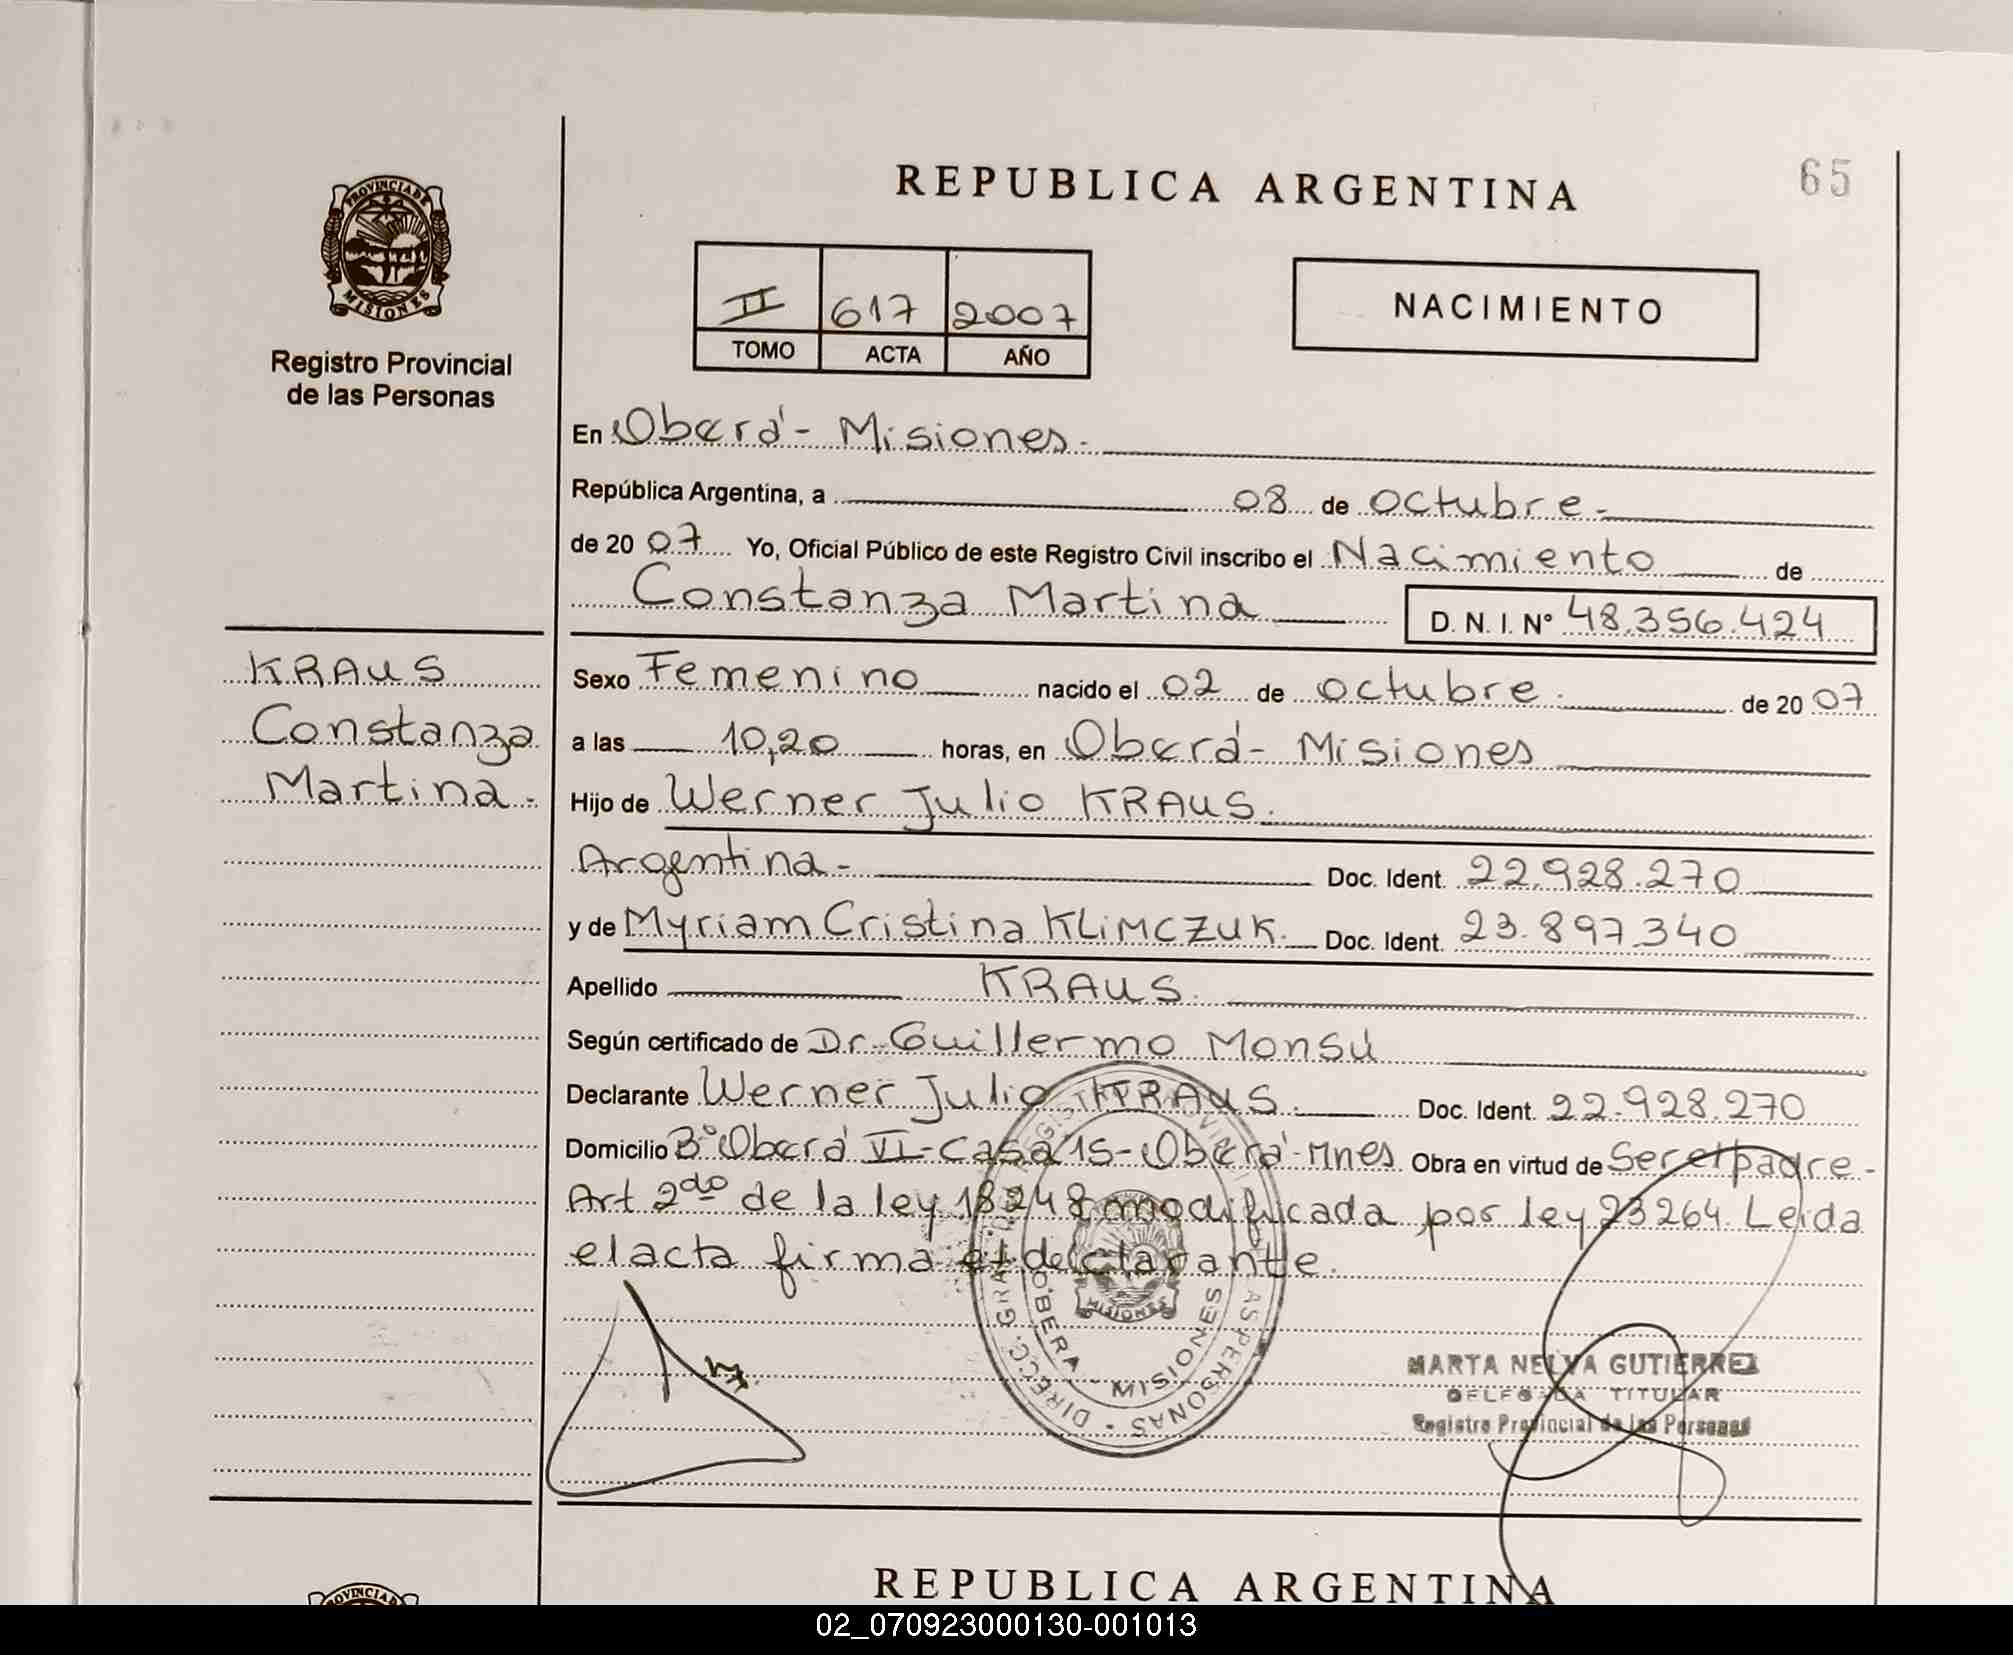 REPUBLICA ARGENTINA
65
PROVINCIA DE
MISIONES
Registro Provincial
de las Personas
II 617 2007
TOMO ACTA AÑO
NACIMIENTO
En Oberá - Misiones.
República Argentina, a 08 de octubre.
de 20 07 Yo, Oficial Público de este Registro Civil inscribo el Nacimiento de
Constanza Martina
D. N. I. N° 48.356.424
KRAUS
Constanza
Martina.
Sexo Femenino nacido el 02 de octubre. de 20 07
a las 10,20 horas, en Oberá - Misiones
Hijo de Werner Julio KRAUS.
Argentina - Doc. Ident. 22.928.270
y de Myriam Cristina KLIMCZUK. Doc. Ident. 23.897.340
Apellido KRAUS.
Según certificado de Dr. Guillermo Monsú
Declarante Werner Julio KRAUS. Doc. Ident. 22.928.270
Domicilio B° Oberá VI - Casa 15 - Oberá - Mnes. Obra en virtud de Ser el padre -
Art 2do de la ley 18248 modificada por ley 23264. Leida
el acta firma el declarante.
OBERA - MISIONES
MISIONES
MARTA NELVA GUTIERREZ
DELEGADA TITULAR
Registro Provincial de las Personas
REPUBLICA ARGENTINA
PROVINCIA
02_070923000130-001013